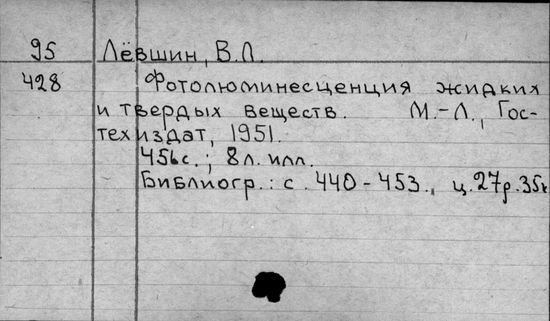 95 Лёвшин, В.Л.
428 Фотолюминесценция жидких
и твердых веществ. М.-Л., Гос-
техиздат, 1951.
456с.; 8л. илл.
Библиогр.: с. 440-453., ц.27р.35к